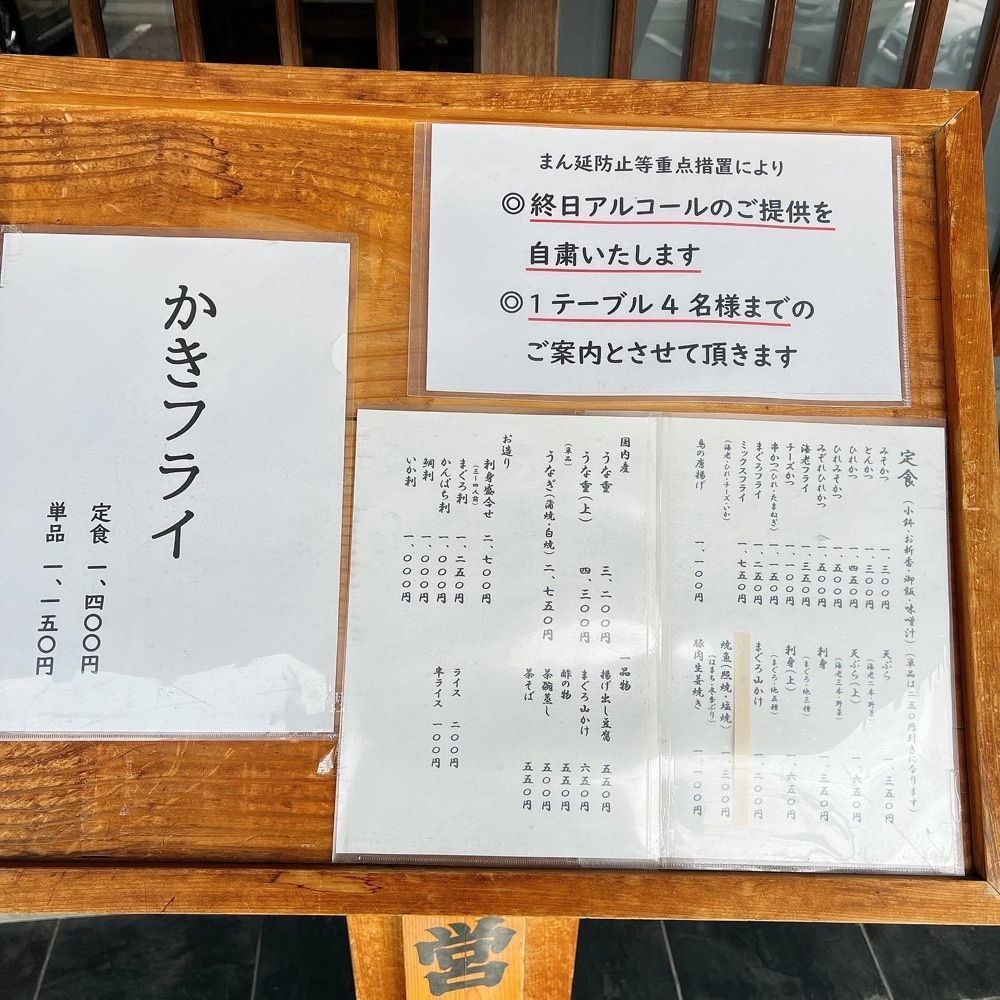 まん延防止等重点措置により
◎終日アルコールのご提供を
自粛いたします
◎1テーブル4名様までの
ご案内とさせて頂きます
かきフライ
定食 一、四〇〇円
単品 一、一五〇円
定食 (小鉢・お新香・御飯・味噌汁) (単品は二五〇円引きになります)
みそかつ 一、三〇〇円
とんかつ 一、三〇〇円
ひれかつ 一、四五〇円
ひれみそかつ 一、五五〇円
みぞれひれかつ 一、五五〇円
海老フライ 一、三五〇円
チーズかつ 一、一〇〇円
串かつ(ひれ・たまねぎ) 一、一五〇円
まぐろフライ 一、一〇〇円
ミックスフライ 一、七五〇円
(海老・ひれ・チーズ・いか)
鳥の唐揚げ 一、一〇〇円
天ぷら 一、三五〇円
(海老二本・野菜)
天ぷら(上) 一、六五〇円
(海老三本・野菜)
刺身 一、三五〇円
(まぐろ・他三種)
刺身(上) 一、六五〇円
(まぐろ・他五種)
まぐろ山かけ 一、二〇〇円
焼魚(照焼・塩焼) 一、三〇〇円
(はまち・冬季ぶり)
豚肉生姜焼き 一、一〇〇円
国内産
うな重 三、二〇〇円
うな重(上) 四、三〇〇円
(単品)
うなぎ(蒲焼・白焼) 二、七五〇円
お造り
刺身盛合せ 二、七〇〇円
(三〜四人前)
まぐろ刺 一、二五〇円
かんぱち刺 一、〇〇〇円
鯛刺 一、〇〇〇円
いか刺 一、〇〇〇円
一品物
揚げ出し豆腐 五五〇円
まぐろ山かけ 六五〇円
酢の物 五五〇円
茶碗蒸し 五〇〇円
茶そば 五五〇円
ライス 二〇〇円
半ライス 一〇〇円
営